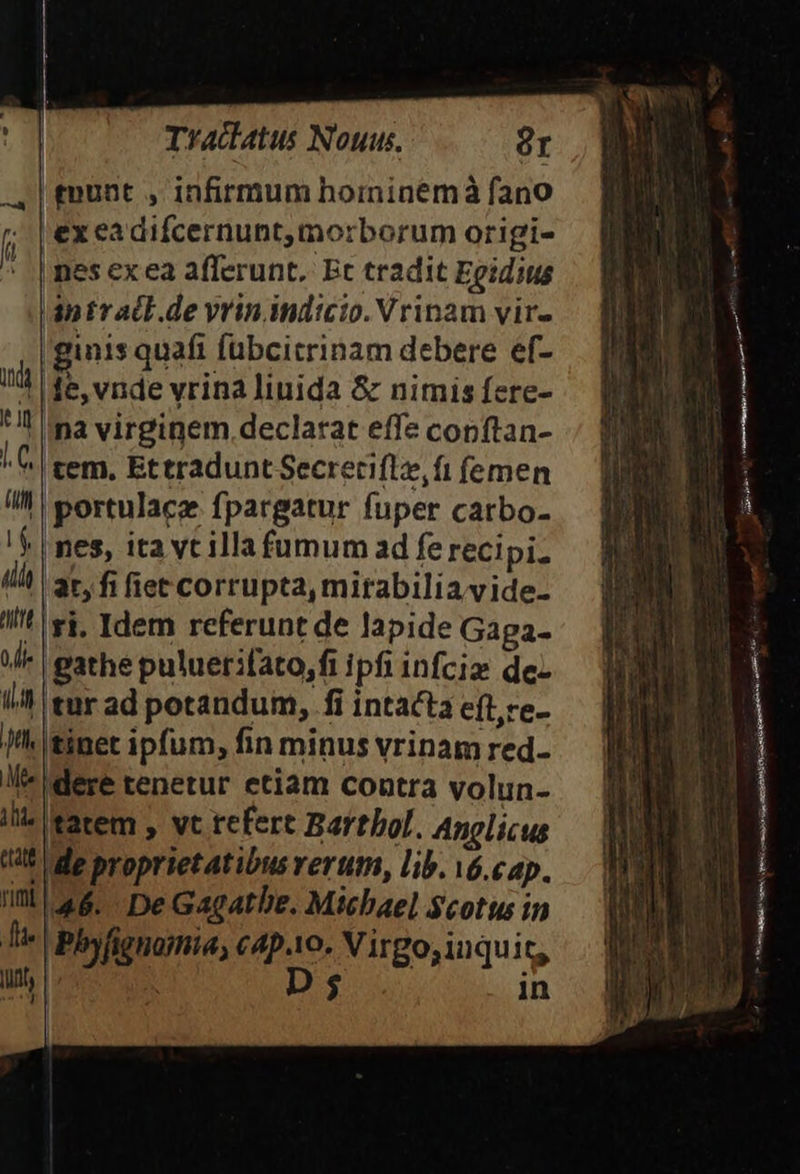 Tractatus Nouus. 81
tuunt , infirmum hominem à ſano
ex ea diſcernunt, morborum origi-
nes ex ea aſſerunt. Et tradit Egidius
in tract. de vrin. indicio. Vrinam vir-
ginis quaſi ſubcitrinam debere eſ-
ſe, vnde vrina liuida & nimis ſere-
na virginem declarat eſſe conſtan-
tem. Et tradunt Secretiſtæ, ſi ſemen
portulacæ ſpargatur ſuper carbo-
nes, ita vt illa fumum ad ſe recipi-
at, ſi ſiet corrupta, mirabilia vide-
ri. Idem referunt de lapide Gaga-
gathe pulueriſato, ſi ipſi inſciæ de-
tur ad potandum, ſi intacta eſt, re-
tinet ipſum, ſin minus vrinam red-
dere tenetur etiam contra volun-
tatem , vt refert Barthol. Anglicus
de proprietatibus rerum, lib. 16. cap.
46. De Gagathe. Michael Scotus in
Phyſignomia, cap. 10. Virgo, inquit,
D 5 in